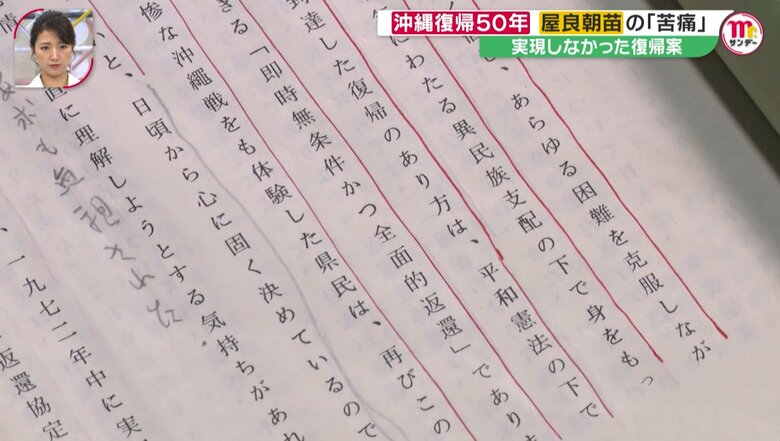 沖縄復帰50年 屋良朝苗の「苦痛」
実現しなかった復帰案
サンデー
、あらゆる困難を克服しなが
にわたる異民族支配の下で身をもっ
到達した復帰のあり方は、平和憲法の下で
きる「即時無条件かつ全面的返還」であり
惨な沖繩戦をも体験した県民は、再びこの
と、日頃から心に固く決めているので
直に理解しようとする気持ちがあれ
求も無視された
、一九七二年中に実
返還協定